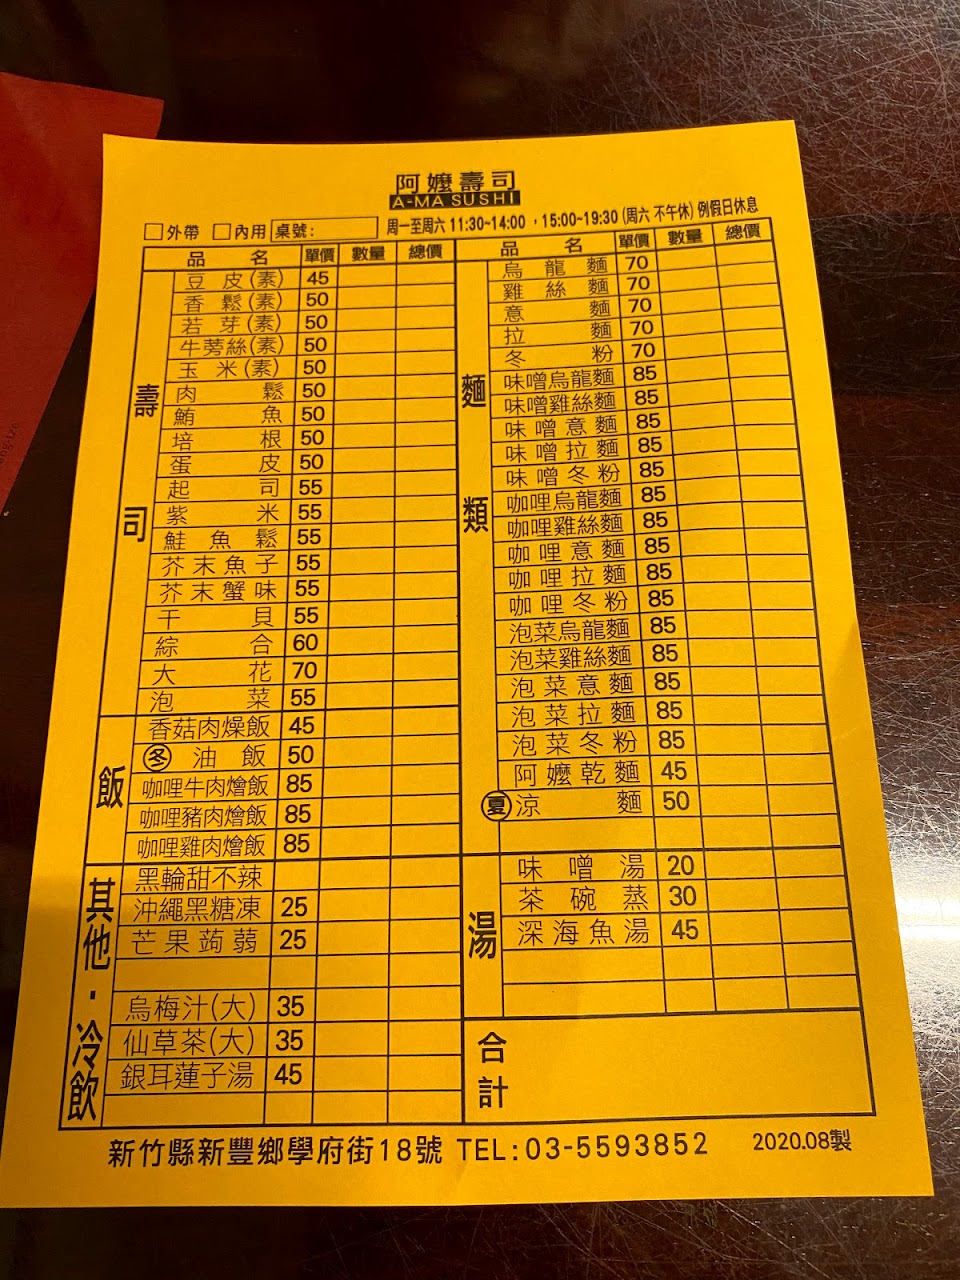 阿嬤壽司
A-MA SUSHI
外帶 內用 桌號: 周一至周六 11:30~14:00 ，15:00~19:30 (周六 不午休) 例假日休息
品名 單價 數量 總價
壽司
豆皮(素) 45
香鬆(素) 50
若芽(素) 50
牛蒡絲(素) 50
玉米(素) 50
肉鬆 50
鮪魚 50
培根 50
蛋皮 50
起司 55
紫米 55
鮭魚鬆 55
芥末魚子 55
芥末蟹味 55
干貝 55
綜合 60
大花 70
泡菜 55
飯
香菇肉燥飯 45
冬 油飯 50
咖哩牛肉燴飯 85
咖哩豬肉燴飯 85
咖哩雞肉燴飯 85
其他·冷飲
黑輪甜不辣
沖繩黑糖凍 25
芒果蒟蒻 25
烏梅汁(大) 35
仙草茶(大) 35
銀耳蓮子湯 45
品名 單價 數量 總價
麵類
烏龍麵 70
雞絲麵 70
意麵 70
拉麵 70
冬粉 70
味噌烏龍麵 85
味噌雞絲麵 85
味噌意麵 85
味噌拉麵 85
味噌冬粉 85
咖哩烏龍麵 85
咖哩雞絲麵 85
咖哩意麵 85
咖哩拉麵 85
咖哩冬粉 85
泡菜烏龍麵 85
泡菜雞絲麵 85
泡菜意麵 85
泡菜拉麵 85
泡菜冬粉 85
阿嬤乾麵 45
夏 涼麵 50
湯
味噌湯 20
茶碗蒸 30
深海魚湯 45
合計
新竹縣新豐鄉學府街18號 TEL:03-5593852 2020.08製